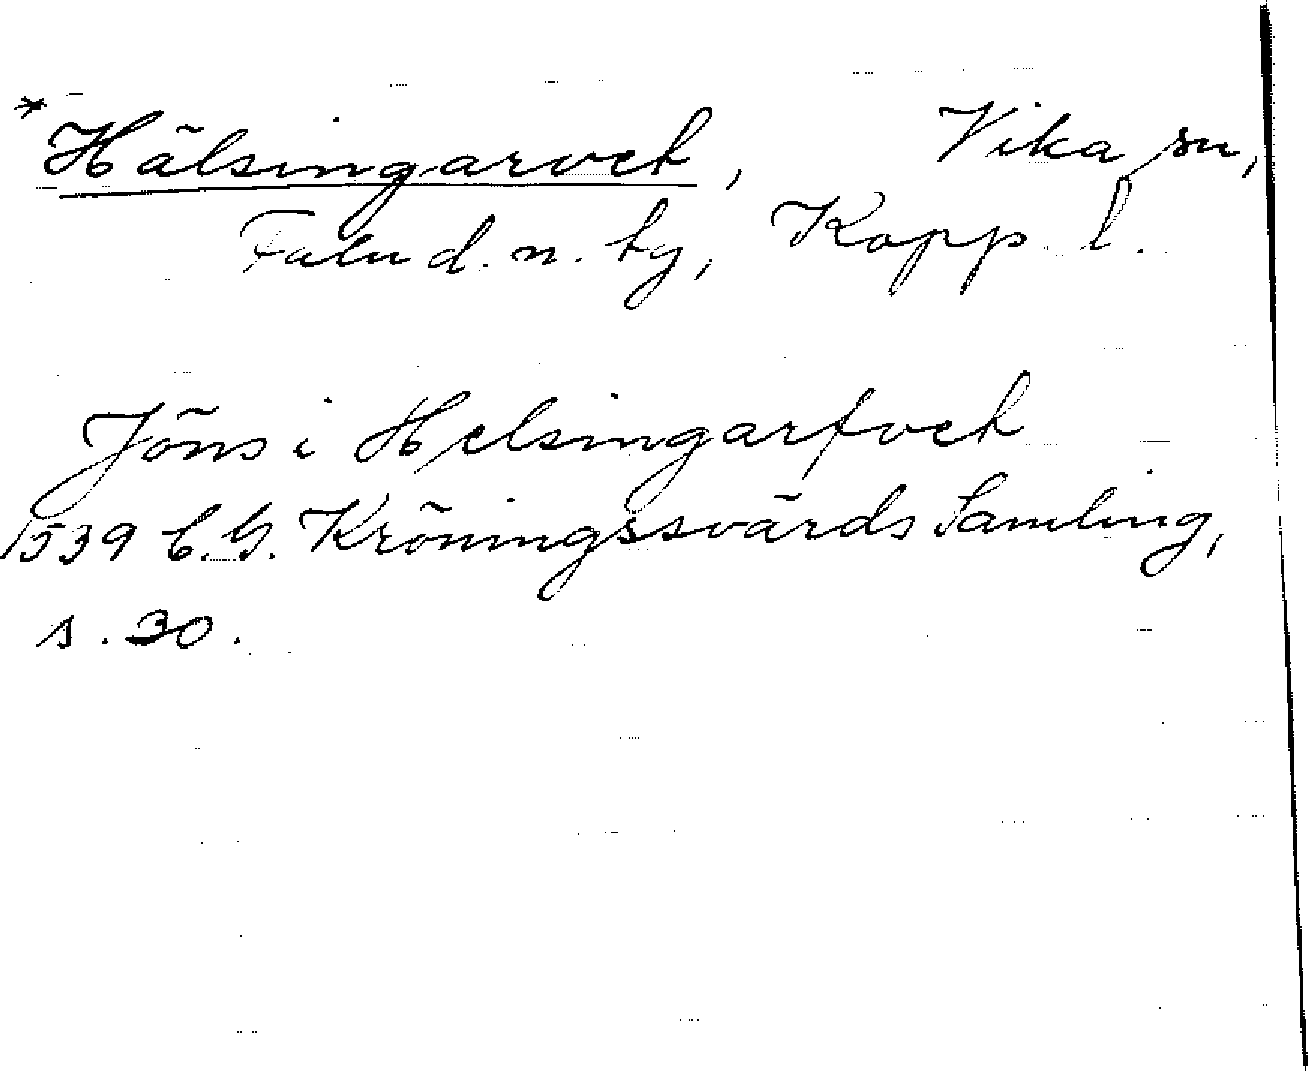 *Hälsingarvet, Vika sn,
Falu d. n. by, Kopp. l.
Jöns i Helsingarfvet
1539 C.G. Kröningssvärds Samling,
s. 30.